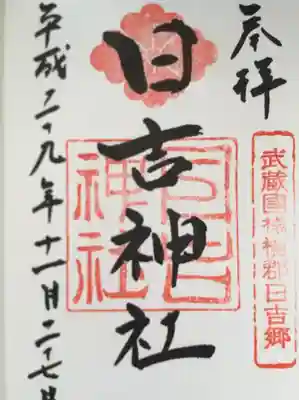 奉拝
武蔵國橘樹郡日吉郷
日吉神社
日吉
神社
平成二十九年十一月二十七日